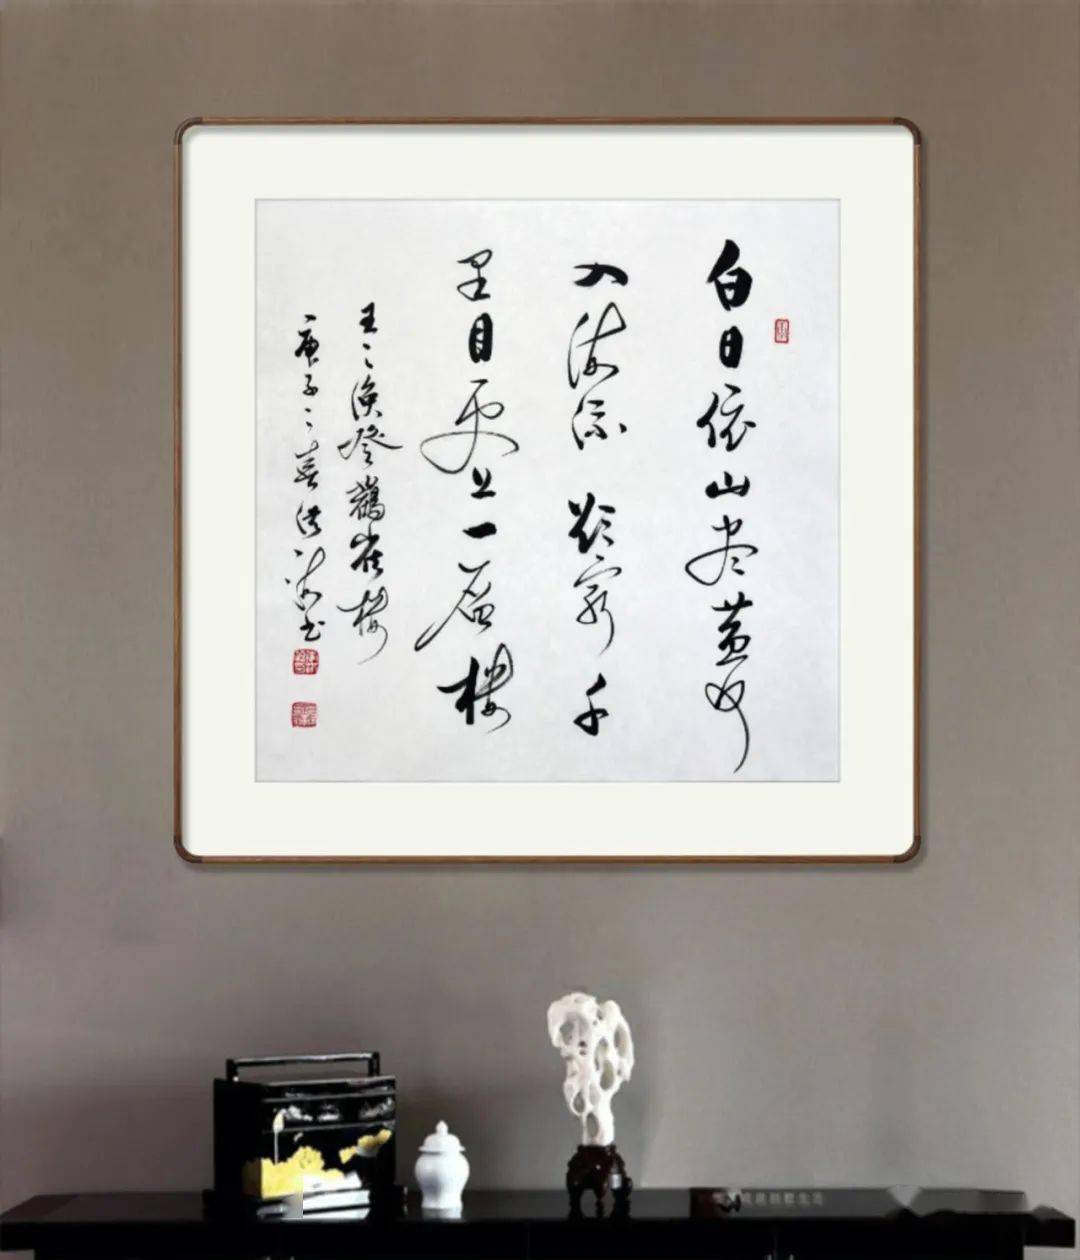 白日依山尽黄河
入海流欲穷千
里目更上一层楼
王之涣登鹳雀楼
庚子之春洪书